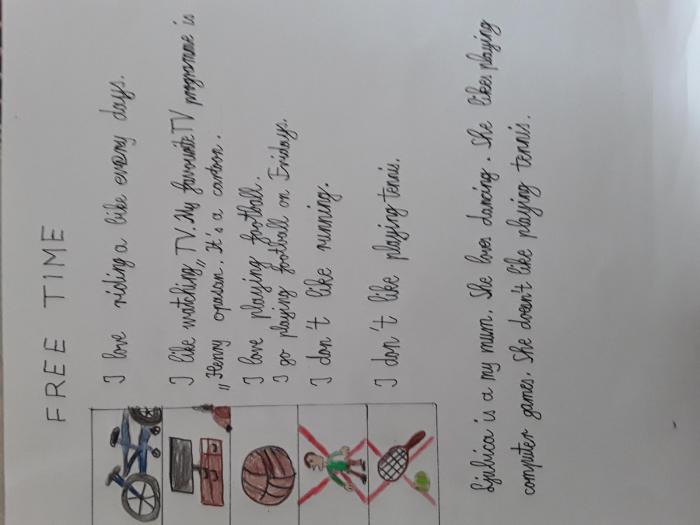 FREE TIME
I love riding a like every days.
I like watching TV. My favourite TV programme is
„Henny opasan. It's a cartoon.
I love playing football.
I go playing football on Fridays.
I don't like running.
I don't like playing tennis.
Ljubica is a my mum. She loves dancing. She likes playing
computer games. She doesn't like playing tennis.